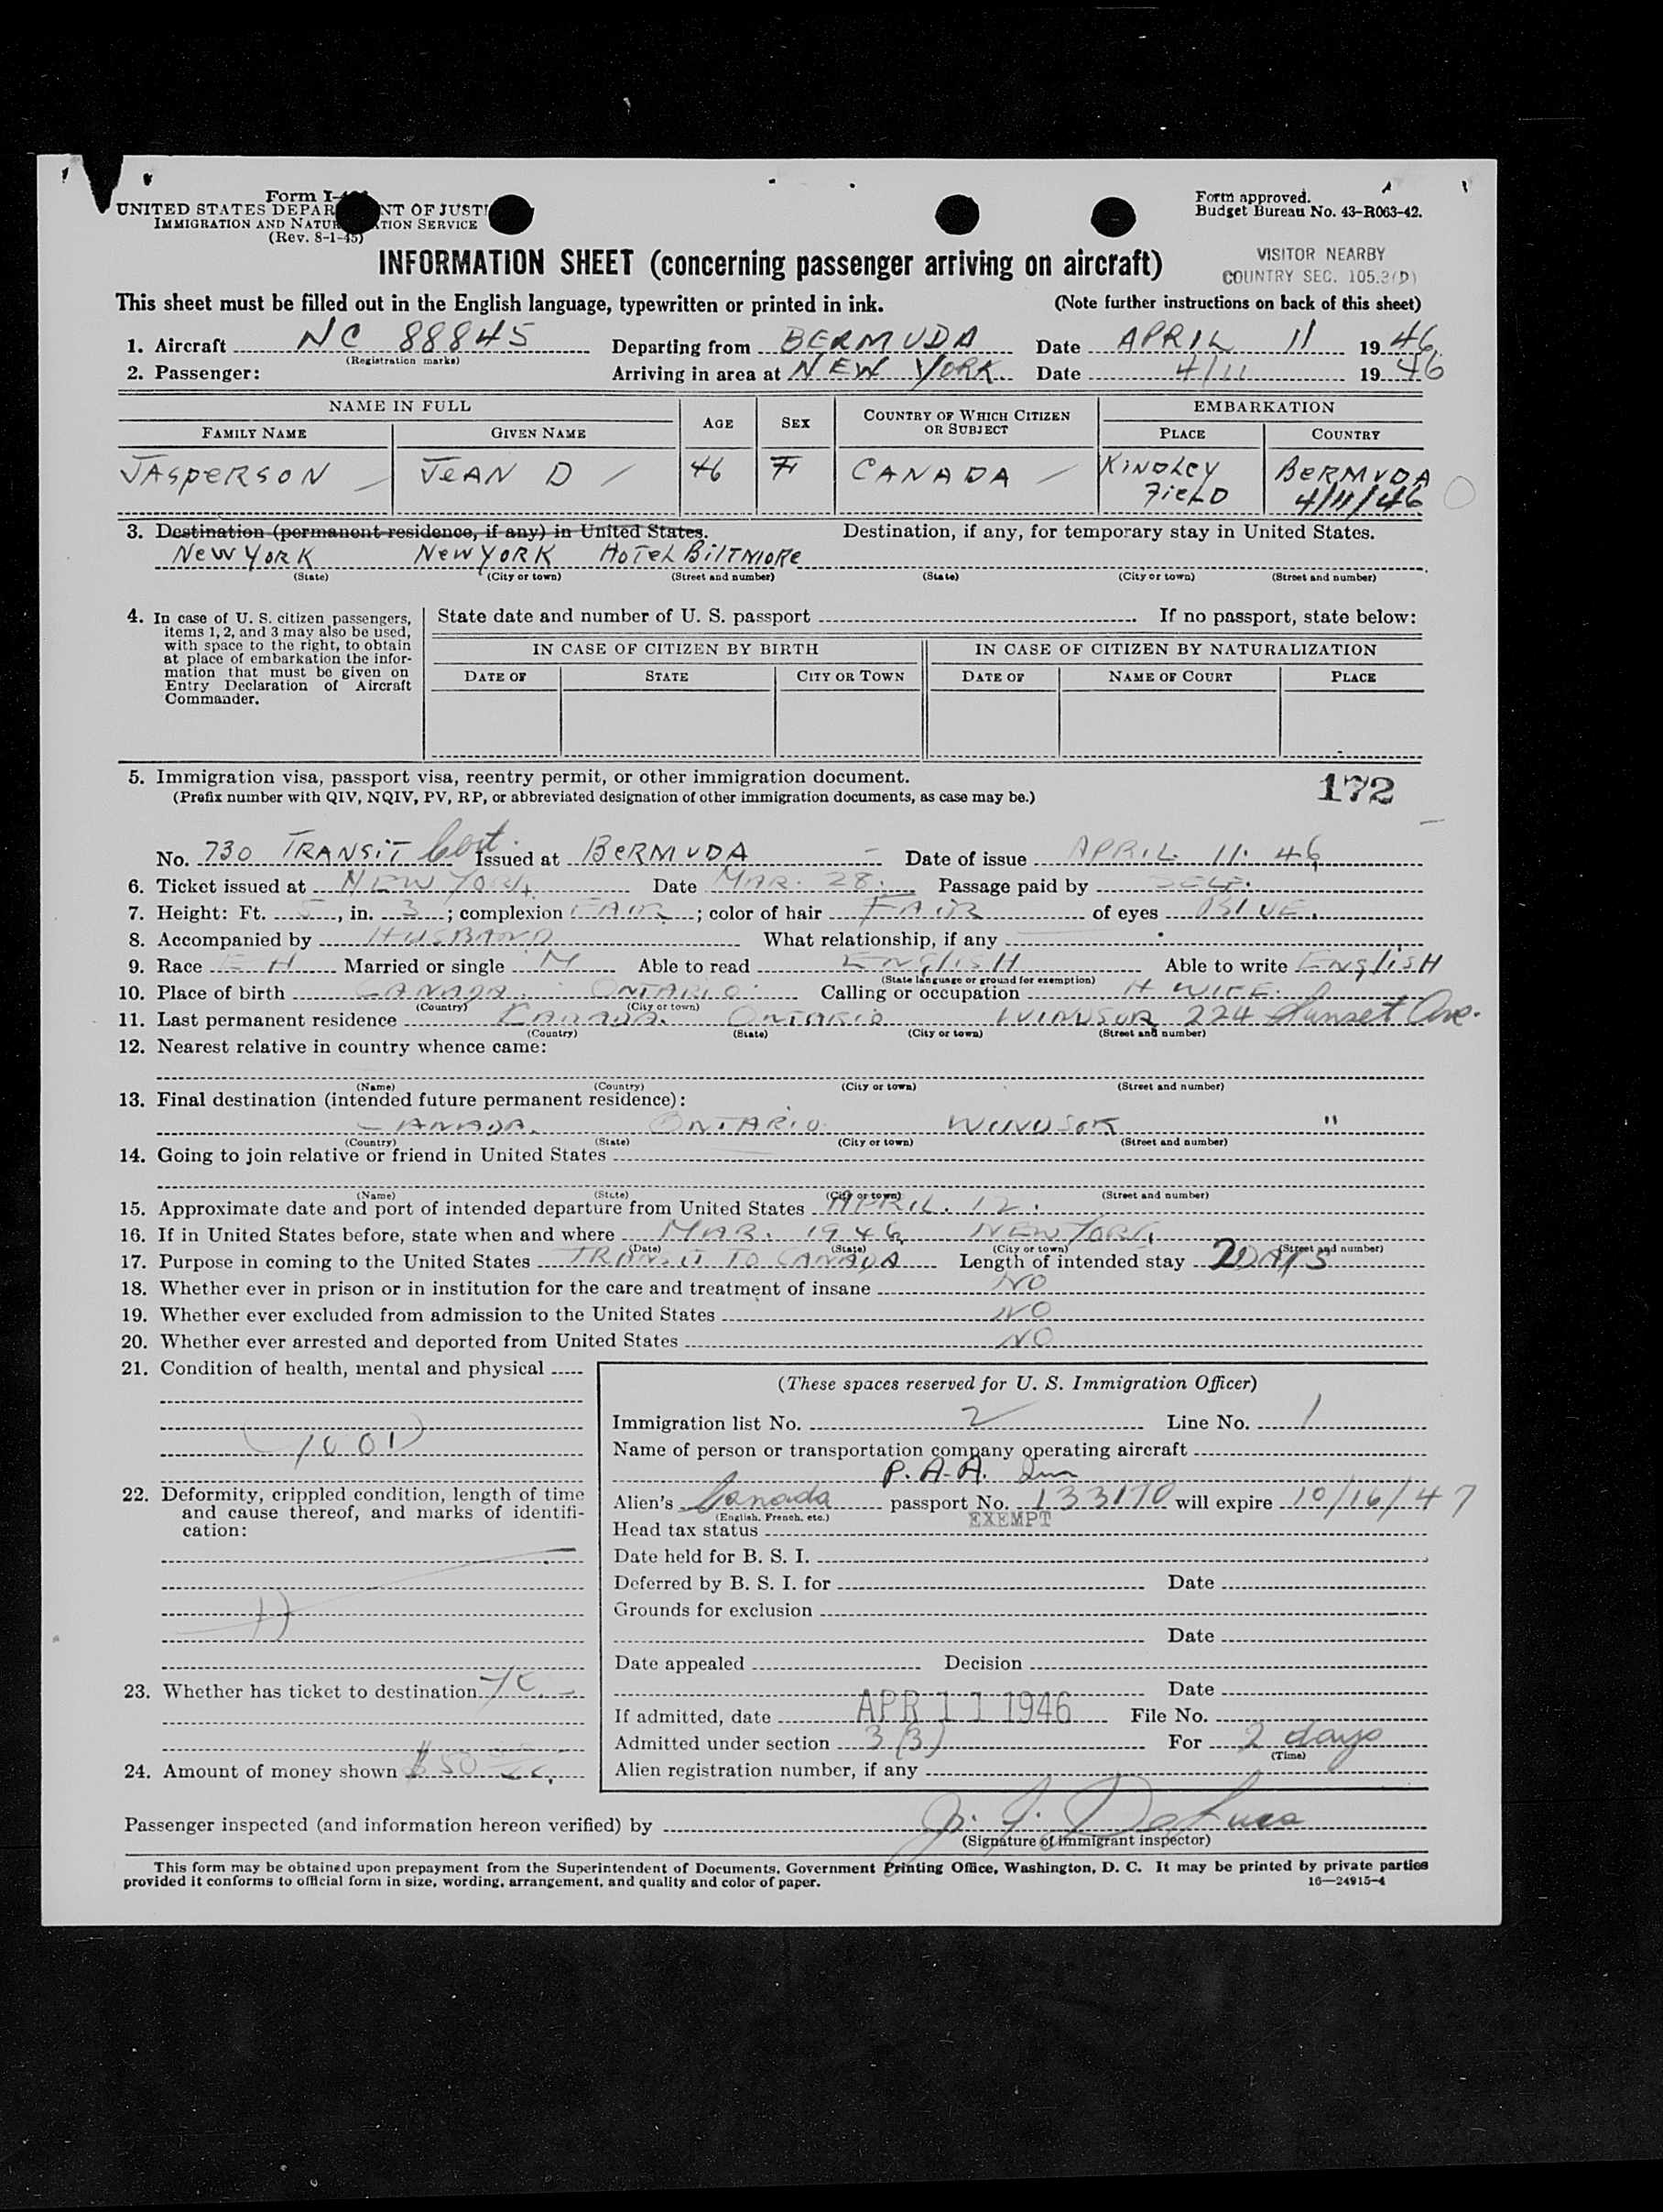 Form I-
UNITED STATES DEPAR NT OF JUSTI
IMMIGRATION AND NATUR TION SERVICE
(Rev. 8-1-45)
Form approved.
Budget Bureau No. 43-R063-42.
INFORMATION SHEET (concerning passenger arriving on aircraft)
VISITOR NEARBY
COUNTRY SEC. 105.3(D)
This sheet must be filled out in the English language, typewritten or printed in ink. (Note further instructions on back of this sheet)
1. Aircraft NC 88845 Departing from BERMUDA Date APRIL 11 1946
(Registration marks)
2. Passenger: Arriving in area at NEW YORK Date 4/11 1946
NAME IN FULL AGE SEX COUNTRY OF WHICH CITIZEN OR SUBJECT EMBARKATION
FAMILY NAME GIVEN NAME PLACE COUNTRY
JASPERSON JEAN D 46 F CANADA KINDLEY FIELD BERMUDA
4/11/46
3. Destination (permanent residence, if any) in United States. Destination, if any, for temporary stay in United States.
NEW YORK NEW YORK HOTEL BILTMORE
(State) (City or town) (Street and number) (State) (City or town) (Street and number)
4. In case of U. S. citizen passengers, items 1, 2, and 3 may also be used, with space to the right, to obtain at place of embarkation the information that must be given on Entry Declaration of Aircraft Commander.
State date and number of U. S. passport If no passport, state below:
IN CASE OF CITIZEN BY BIRTH IN CASE OF CITIZEN BY NATURALIZATION
DATE OF STATE CITY OR TOWN DATE OF NAME OF COURT PLACE
5. Immigration visa, passport visa, reentry permit, or other immigration document.
(Prefix number with QIV, NQIV, PV, RP, or abbreviated designation of other immigration documents, as case may be.)
172
No. 730 TRANSIT Cert. Issued at BERMUDA Date of issue APRIL 11. 46
6. Ticket issued at NEW YORK Date MAR. 28. Passage paid by SELF.
7. Height: Ft. 5, in. 3; complexion FAIR; color of hair FAIR of eyes BLUE.
8. Accompanied by HUSBAND What relationship, if any
9. Race EH Married or single M Able to read ENGLISH Able to write ENGLISH
(State language or ground for exemption)
10. Place of birth CANADA. ONTARIO Calling or occupation H WIFE.
(Country) (City or town)
11. Last permanent residence CANADA. ONTARIO WINDSOR 224 Sunset Ave.
(Country) (State) (City or town) (Street and number)
12. Nearest relative in country whence came:
(Name) (Country) (City or town) (Street and number)
13. Final destination (intended future permanent residence):
CANADA. ONTARIO WINDSOR "
(Country) (State) (City or town) (Street and number)
14. Going to join relative or friend in United States
(Name) (State) (City or town) (Street and number)
15. Approximate date and port of intended departure from United States APRIL. 12.
16. If in United States before, state when and where MAR. 1946 NEW YORK.
(Date) (State) (City or town) (Street and number)
17. Purpose in coming to the United States TRANSIT TO CANADA Length of intended stay 2 DAYS
18. Whether ever in prison or in institution for the care and treatment of insane NO
19. Whether ever excluded from admission to the United States NO
20. Whether ever arrested and deported from United States NO
21. Condition of health, mental and physical
(These spaces reserved for U. S. Immigration Officer)
Immigration list No. 2 Line No. 1
Name of person or transportation company operating aircraft
P. A. A.
22. Deformity, crippled condition, length of time and cause thereof, and marks of identification:
Alien's Canada passport No. 133170 will expire 10/16/47
(English, French, etc.)
Head tax status EXEMPT
Date held for B. S. I.
Deferred by B. S. I. for Date
Grounds for exclusion
Date
Date appealed Decision
23. Whether has ticket to destination
Date
If admitted, date APR 11 1946 File No.
Admitted under section 3(3) For 2 days
(Time)
24. Amount of money shown $50
Alien registration number, if any
Passenger inspected (and information hereon verified) by
(Signature of immigrant inspector)
This form may be obtained upon prepayment from the Superintendent of Documents, Government Printing Office, Washington, D. C. It may be printed by private parties
provided it conforms to official form in size, wording, arrangement, and quality and color of paper. 16—24915-4